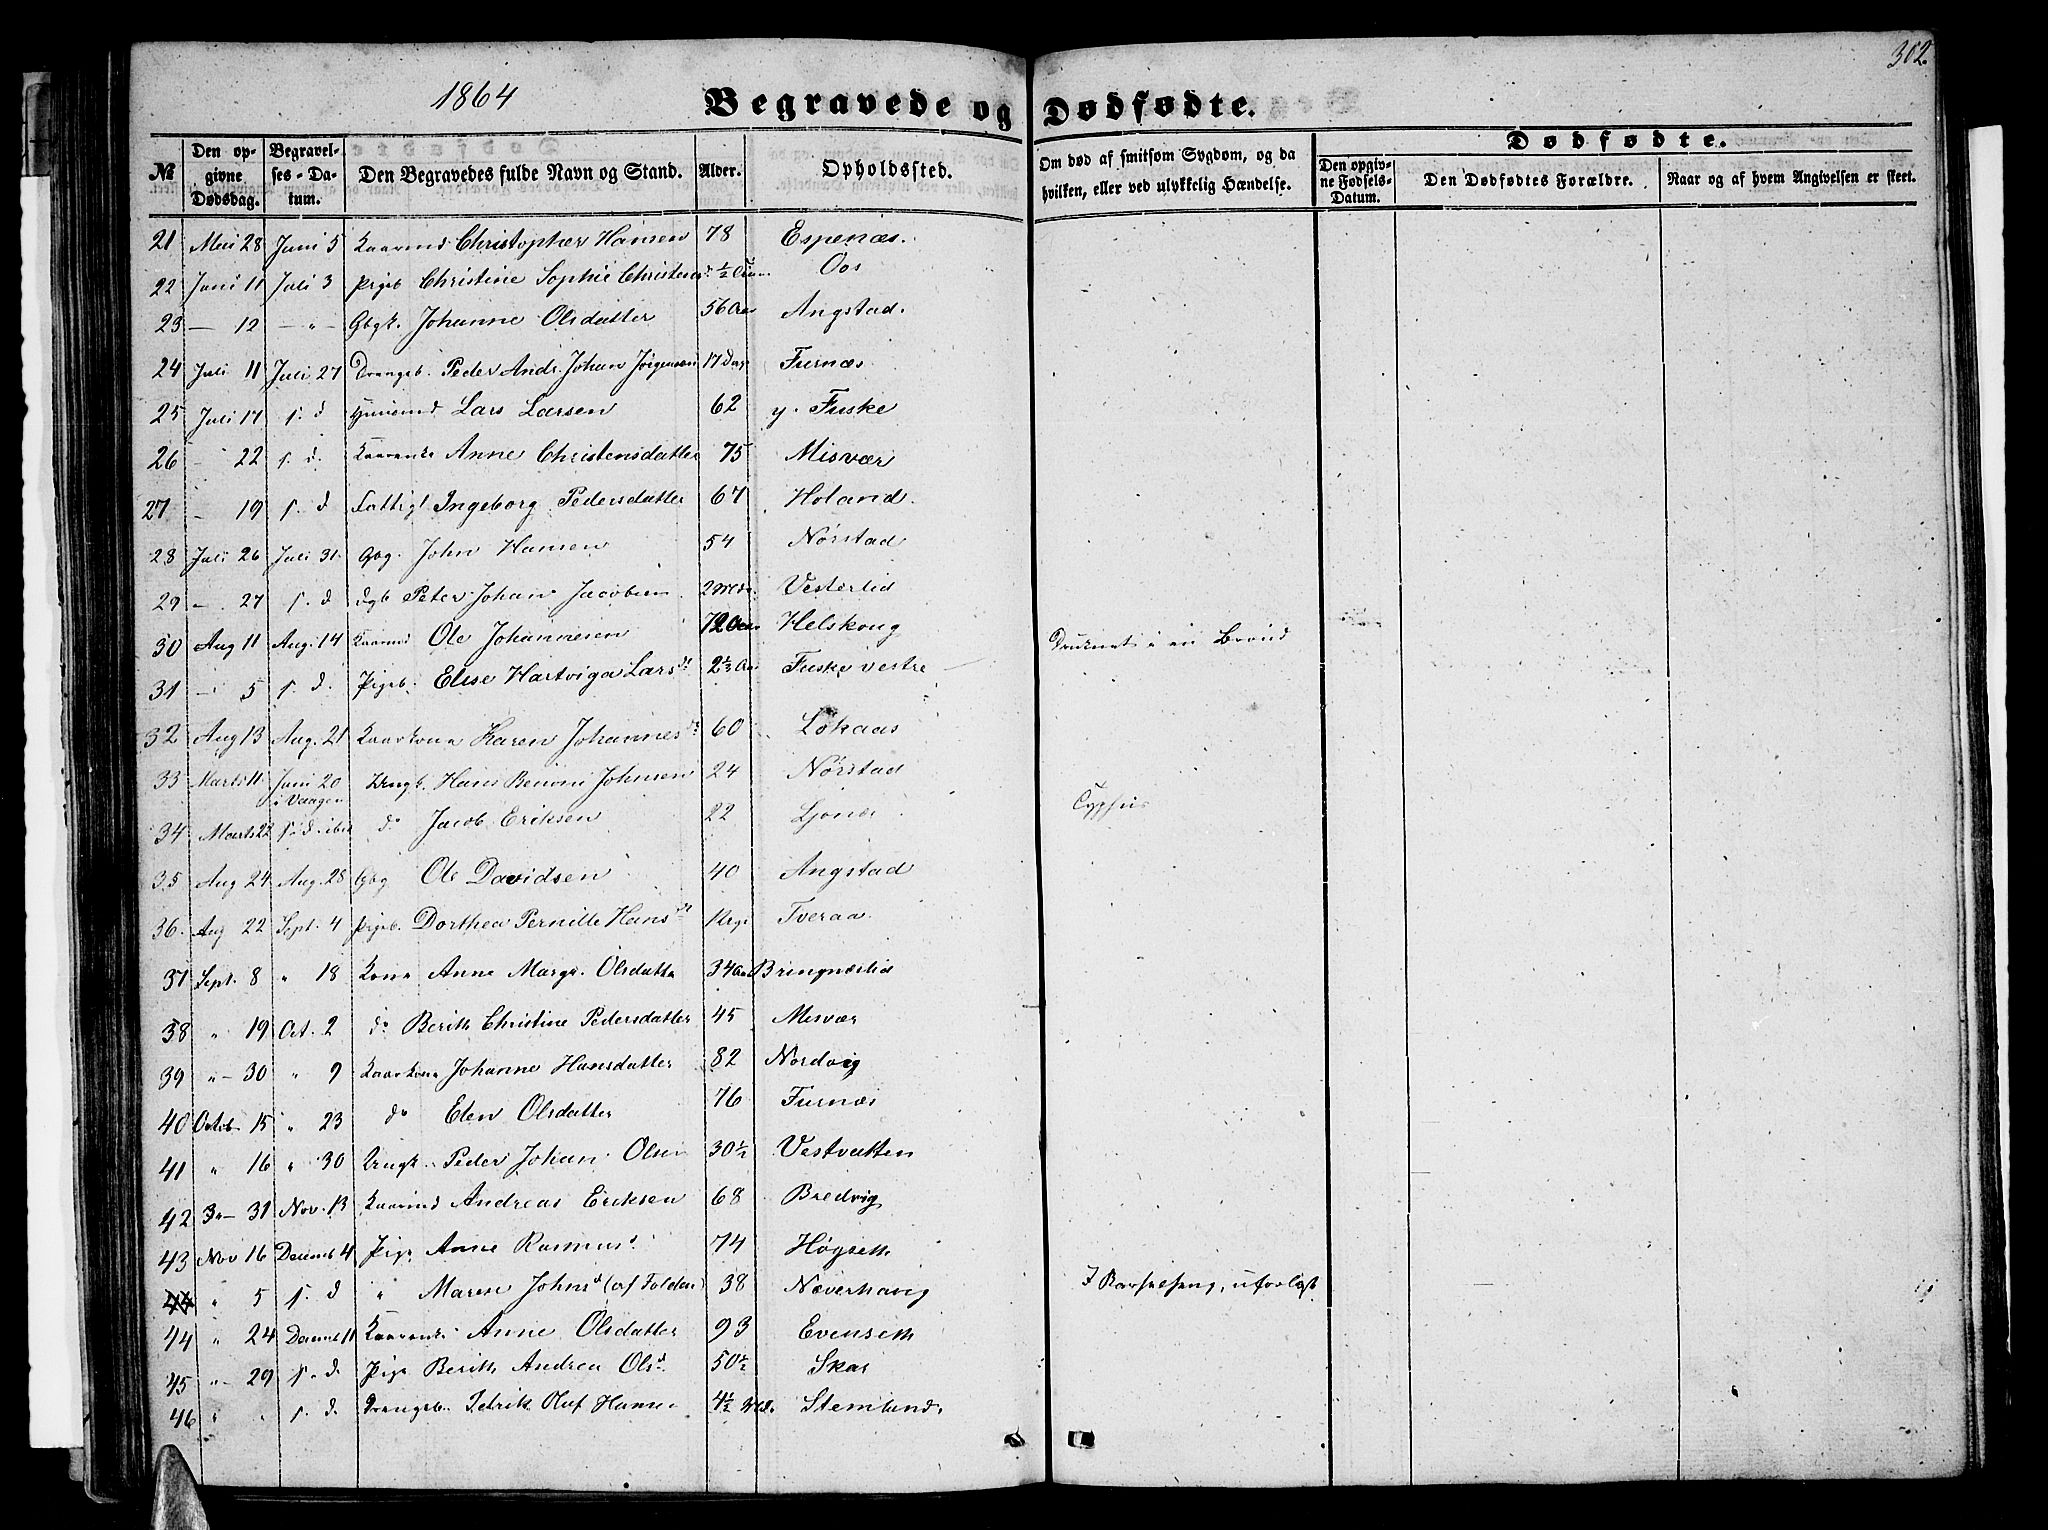 302.
1864
Begravede og Dødfødte.
Dødfødte.
№
Den opgivne Dødsdag.
Begravelses-Datum.
Den Begravedes fulde Navn og Stand.
Alder.
Opholdssted.
Om død af smitsom Sygdom, og da hvilken, eller ved ulykkelig Hændelse.
Den opgivne Fødsels-Datum.
Den Dødfødtes Forældre.
Naar og af hvem Angivelsen er skeet.
21 Mai 28 Juni 5 Kaarmd Christopher Hansen 78 Espenæs.
22 Juni 11 Juli 3 Pigeb Christine Sophie Christensd. ½ Aar Oos
23 — 12 — " — Gbgk. Johanne Olsdatter 56 Aar Angstad.
24 Juli 11 Juli 27 Drangeb. Peder Andr. Johan Jørgensen 17 Dag Furnæs
25 Juli 17 s. d Huusmd Lars Larsen 62 y. Fuske
26 - 22 s. d. Kaarenke Anne Christensdatter 75 Misvær
27 - 19 s. d Fattigl Ingeborg Pedersdatter 67 Holand
28 Juli 26 Juli 31. Gbg. John Hansen 54 Nørstad
29 - . 27 s. d dgb Peter Johan Jacobsen 2 Mdr. Vesterlid
30 Aug 11 Aug. 14 Kaarmd Ole Johannesen 72 Aar Helskoug Druknet i en Brønd
31 - 5 s. d. Pigeb. Elise Hartviga Larsdr 2½ Aar Fuske vestre
32 Aug 13 Aug. 21 Kaarkona Karen Johannesdr 60 Løkaas
33 Marts 11 Juni 20 i Vaagen Ungk. Hans Benoni Johnsen 24 Nørstad
34 Marts 22 s. d. ibid do Jacob Eriksen 22 Ljønes Typhus
35 Aug 24 Aug. 28 Gbg Ole Davidsen 40 Angstad
36. Aug 22 Sept. 4 Pigeb. Dorthea Pernille Hansdr Tveraa
37 Sept. 8 " 18 Kona Anne Margr. Olsdatter 34 Aar Bringneslid
38 " 19 Oct. 2 do Berith Christine Pedersdatter 45 Misvær
39 " — 30 " 9 Kaarkona Johanne Hansdatter 82 Nordvig
40 Octob 15 " 23 do Elen Olsdatter 76 Furnæs
41 " 16 " 30 Ungk. Peder Johan Olsen 30½ Vestvatten
42 31 Nov. 13 Kaarmd Andreas Eriksen 68 Bredvig
43 Nov 16 Decemb 4 Pige Anne Rasmusd. 74 Høgseth
44 " 5 s. d " Maren Johnsd (af Folden) 38 Næverhaug I Barselseng, uforløst
44 " 24 Decemb 11 Kaarenke Anne Olsdatter 93 Evenseth
45 " 29 s. d Pige Berith Andrea Olsd. 50½ Skar
46 " " s. d. Drangeb. Fedrik Oluf Hansen 4½ Md. Stemlund.